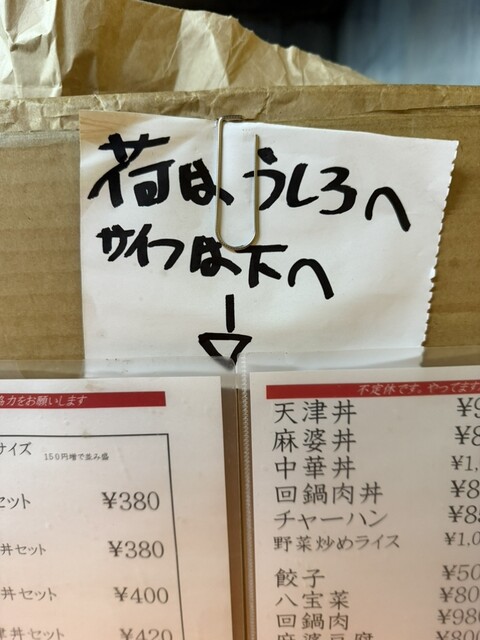 荷は、うしろへ
サイフは、下へ
力をお願いします
サイズ
150円増で並み盛
セット ¥380
丼セット ¥380
丼セット ¥400
丼セット ¥420
不定休です。やってます
天津丼 ¥9
麻婆丼 ¥8
中華丼 ¥1,
回鍋肉丼 ¥8
チャーハン ¥85
野菜炒めライス ¥1,0
餃子 ¥50
八宝菜 ¥80
回鍋肉 ¥980
麻婆豆腐 ¥800